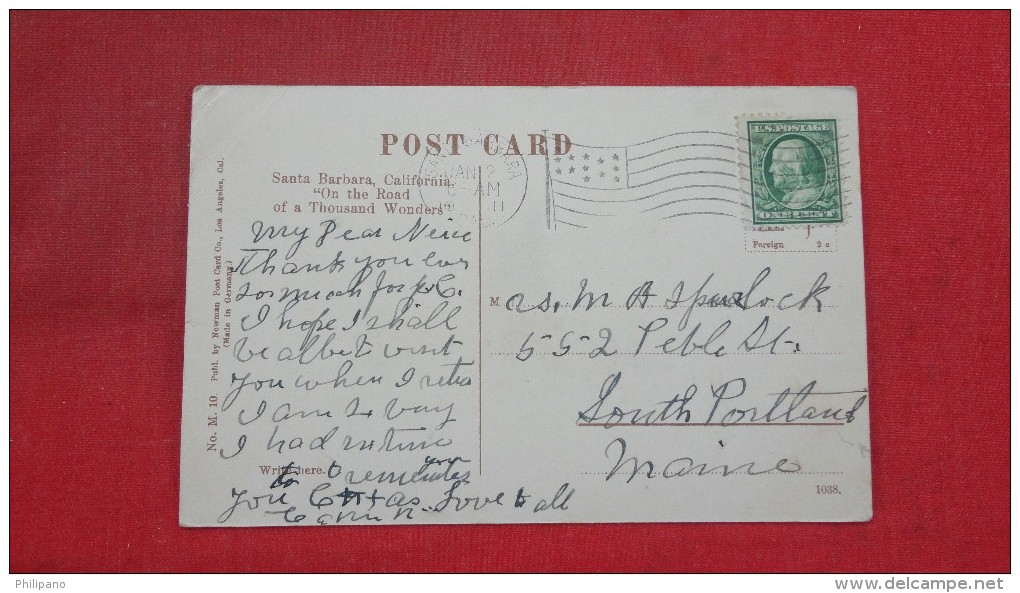 POST CARD
Santa Barbara, California.
"On the Road
of a Thousand Wonders"
SANTA BARBARA
JAN 2
AM
11
U.S. POSTAGE
ONE CENT
Foreign 2 c
My Dear Niece
Thank you ever
so much for
I hope I shall
be able to visit
you when I
I am
I had
Write here.
to
you as. Love to all
No. M. 10. Publ. by Newman Post Card Co., Los Angeles, Cal.
(Made in Germany)
Mrs. M A Spurlock
552 Peble St.
South Portland
Maine
1038.
Philipano
www.delcampe.net